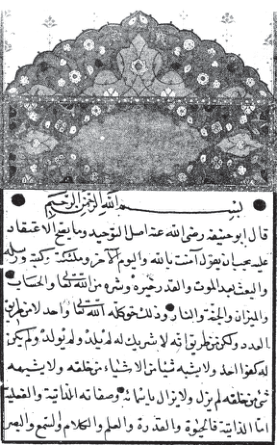 بسم الله الرحمن الرحيم
قال ابو حنيفة رضى الله عنه اصل التوحيد وما يصح الاعتقاد
عليه يجب ان يقول آمنت بالله واليوم الآخر وملئكته وكتبه ورسله
والبعث بعد الموت والقدر خيره وشره من الله تعالى والحساب
والميزان والجنة والنار وذلك حق كله الله تعالى واحد لا من طريق
العدد ولكن من طريق انه لا شريك له لم يلد ولم يولد ولم يكن
له كفوا احد ولا يشبه شيئا من الاشياء من خلقه ولا يشبهه
شئ من خلقه لم يزل ولا يزال باسمائه وصفاته الذاتية والفعلية
اما الذاتية فالحيوة والقدرة والعلم والكلام والسمع والبصر